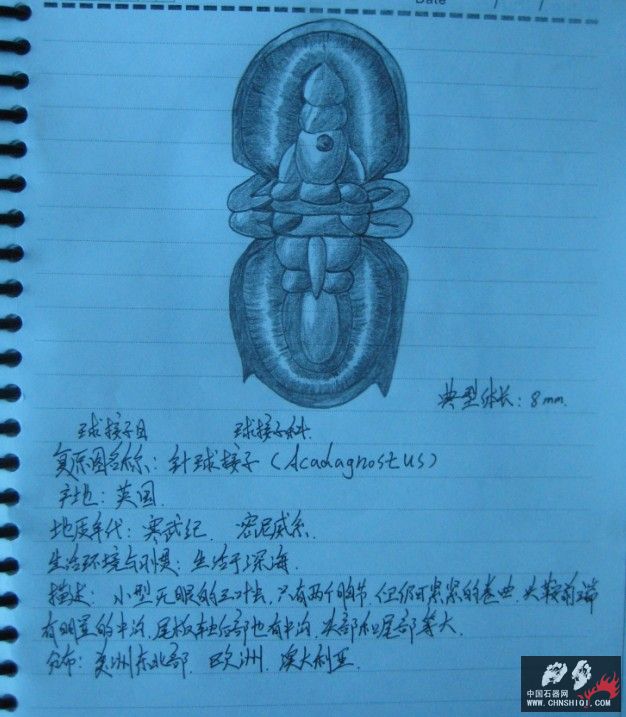 Date
典型体长：8mm.
球接子目 球接子科.
复原图名称：针球接子（Acadagnostus）
产地：英国.
地质年代：寒武纪. 圣尼威系.
生活环境与习惯：生活于深海.
描述：小型无眼的三叶虫，只有两个胸节，但仍可紧紧的卷曲，头鞍前端
有明显的中沟，尾板轴后部也有中沟，头部和尾部等大.
分布：美洲东北部. 欧洲. 澳大利亚.
中国石器网
WWW.CHNSHIQI.COM